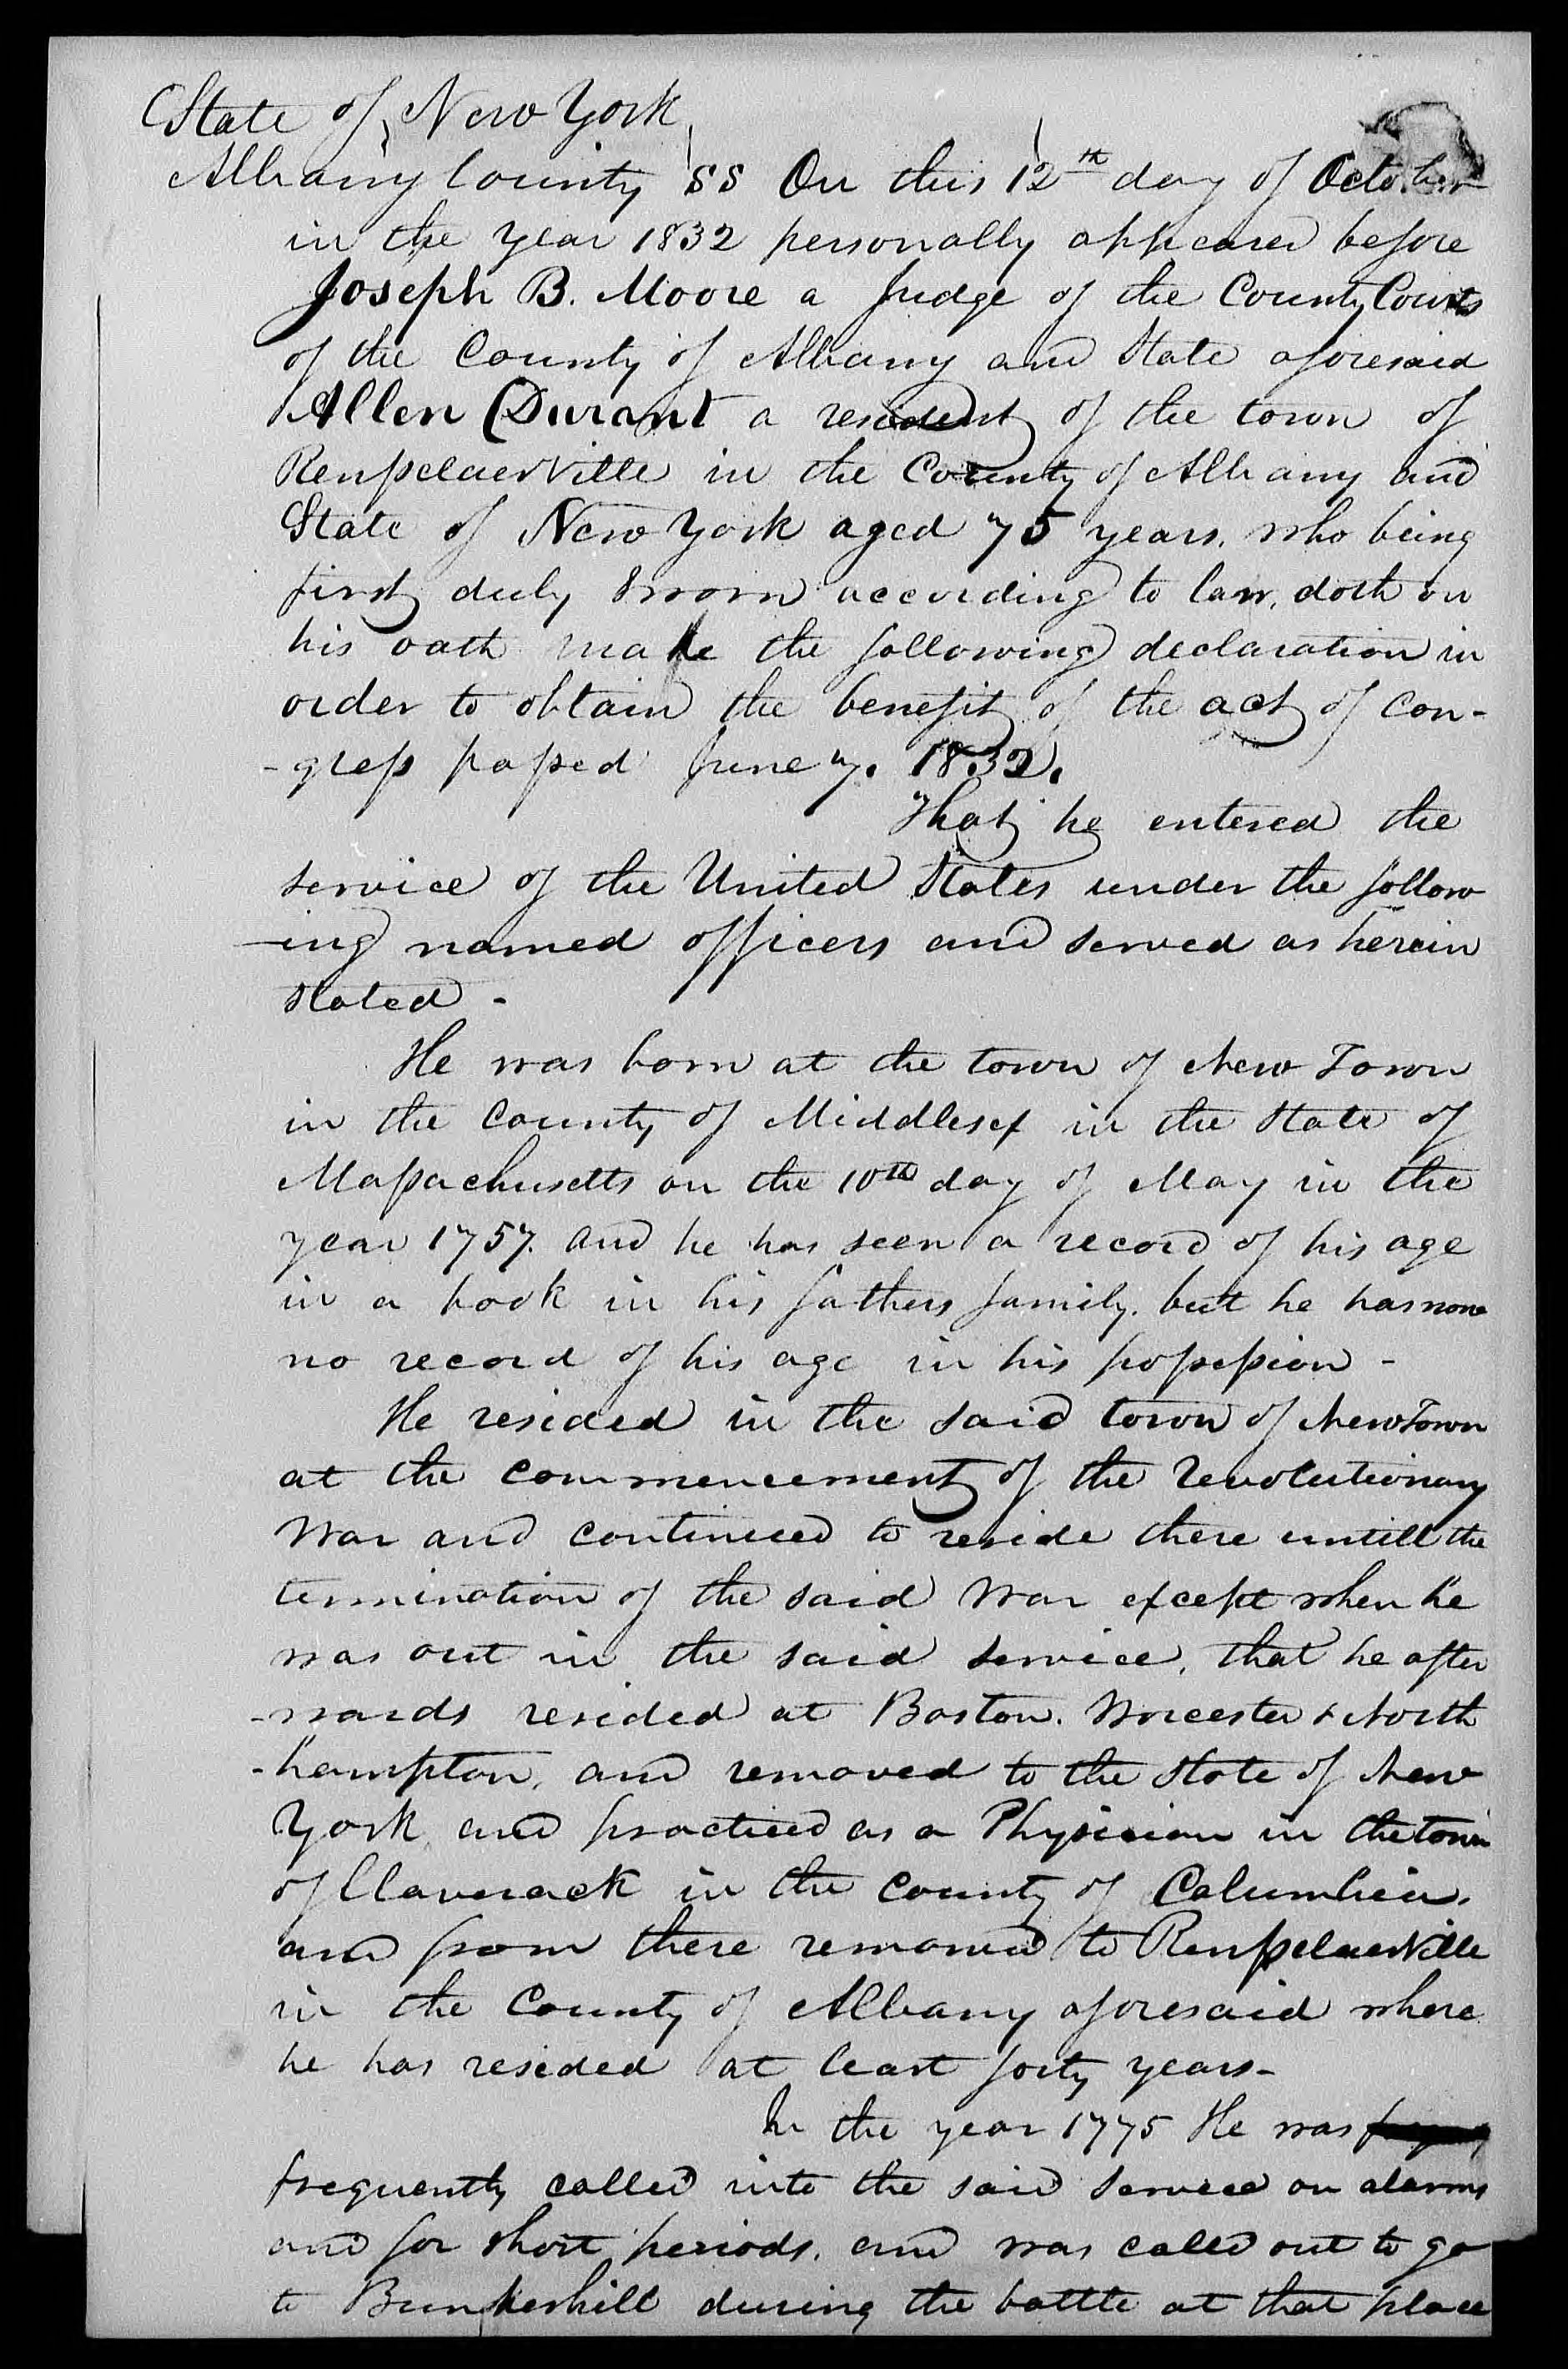 State of New York
Albany County SS On this 12th day of October
in the year 1832 personally appeared before
Joseph B. Moore a Judge of the County Courts
of the County of Albany and State aforesaid
Allen Durant a resident of the town of
Rensselaerville in the County of Albany and
State of New York aged 75 years. who being
first duly sworn according to law, doth on
his oath make the following declaration in
order to obtain the benefit of the act of Con-
-gress passed June 7. 1832.
That he entered the
service of the United States under the follow
-ing named officers and served as herein
stated -
He was born at the town of New Town
in the County of Middlesex in the State of
Massachusetts on the 10th day of May in the
year 1757. and he has seen a record of his age
in a book in his fathers family. but he has now
no record of his age in his possession -
He resided in the said town of New Town
at the commencement of the revolutionary
War and continued to reside there untill the
termination of the said War except when he
was out in the said service, that he after
-wards resided at Boston. Worcester & North
-hampton, and removed to the State of New
York and practiced as a Physician in the town
of Claverack in the County of Columbia.
and from there removed to Rensselaerville
in the County of Albany aforesaid where
he has resided at least forty years-
In the year 1775 He was
frequently called into the said service on alarms
and for short periods. and was called out to go
to Bunkerhill during the battle at that place